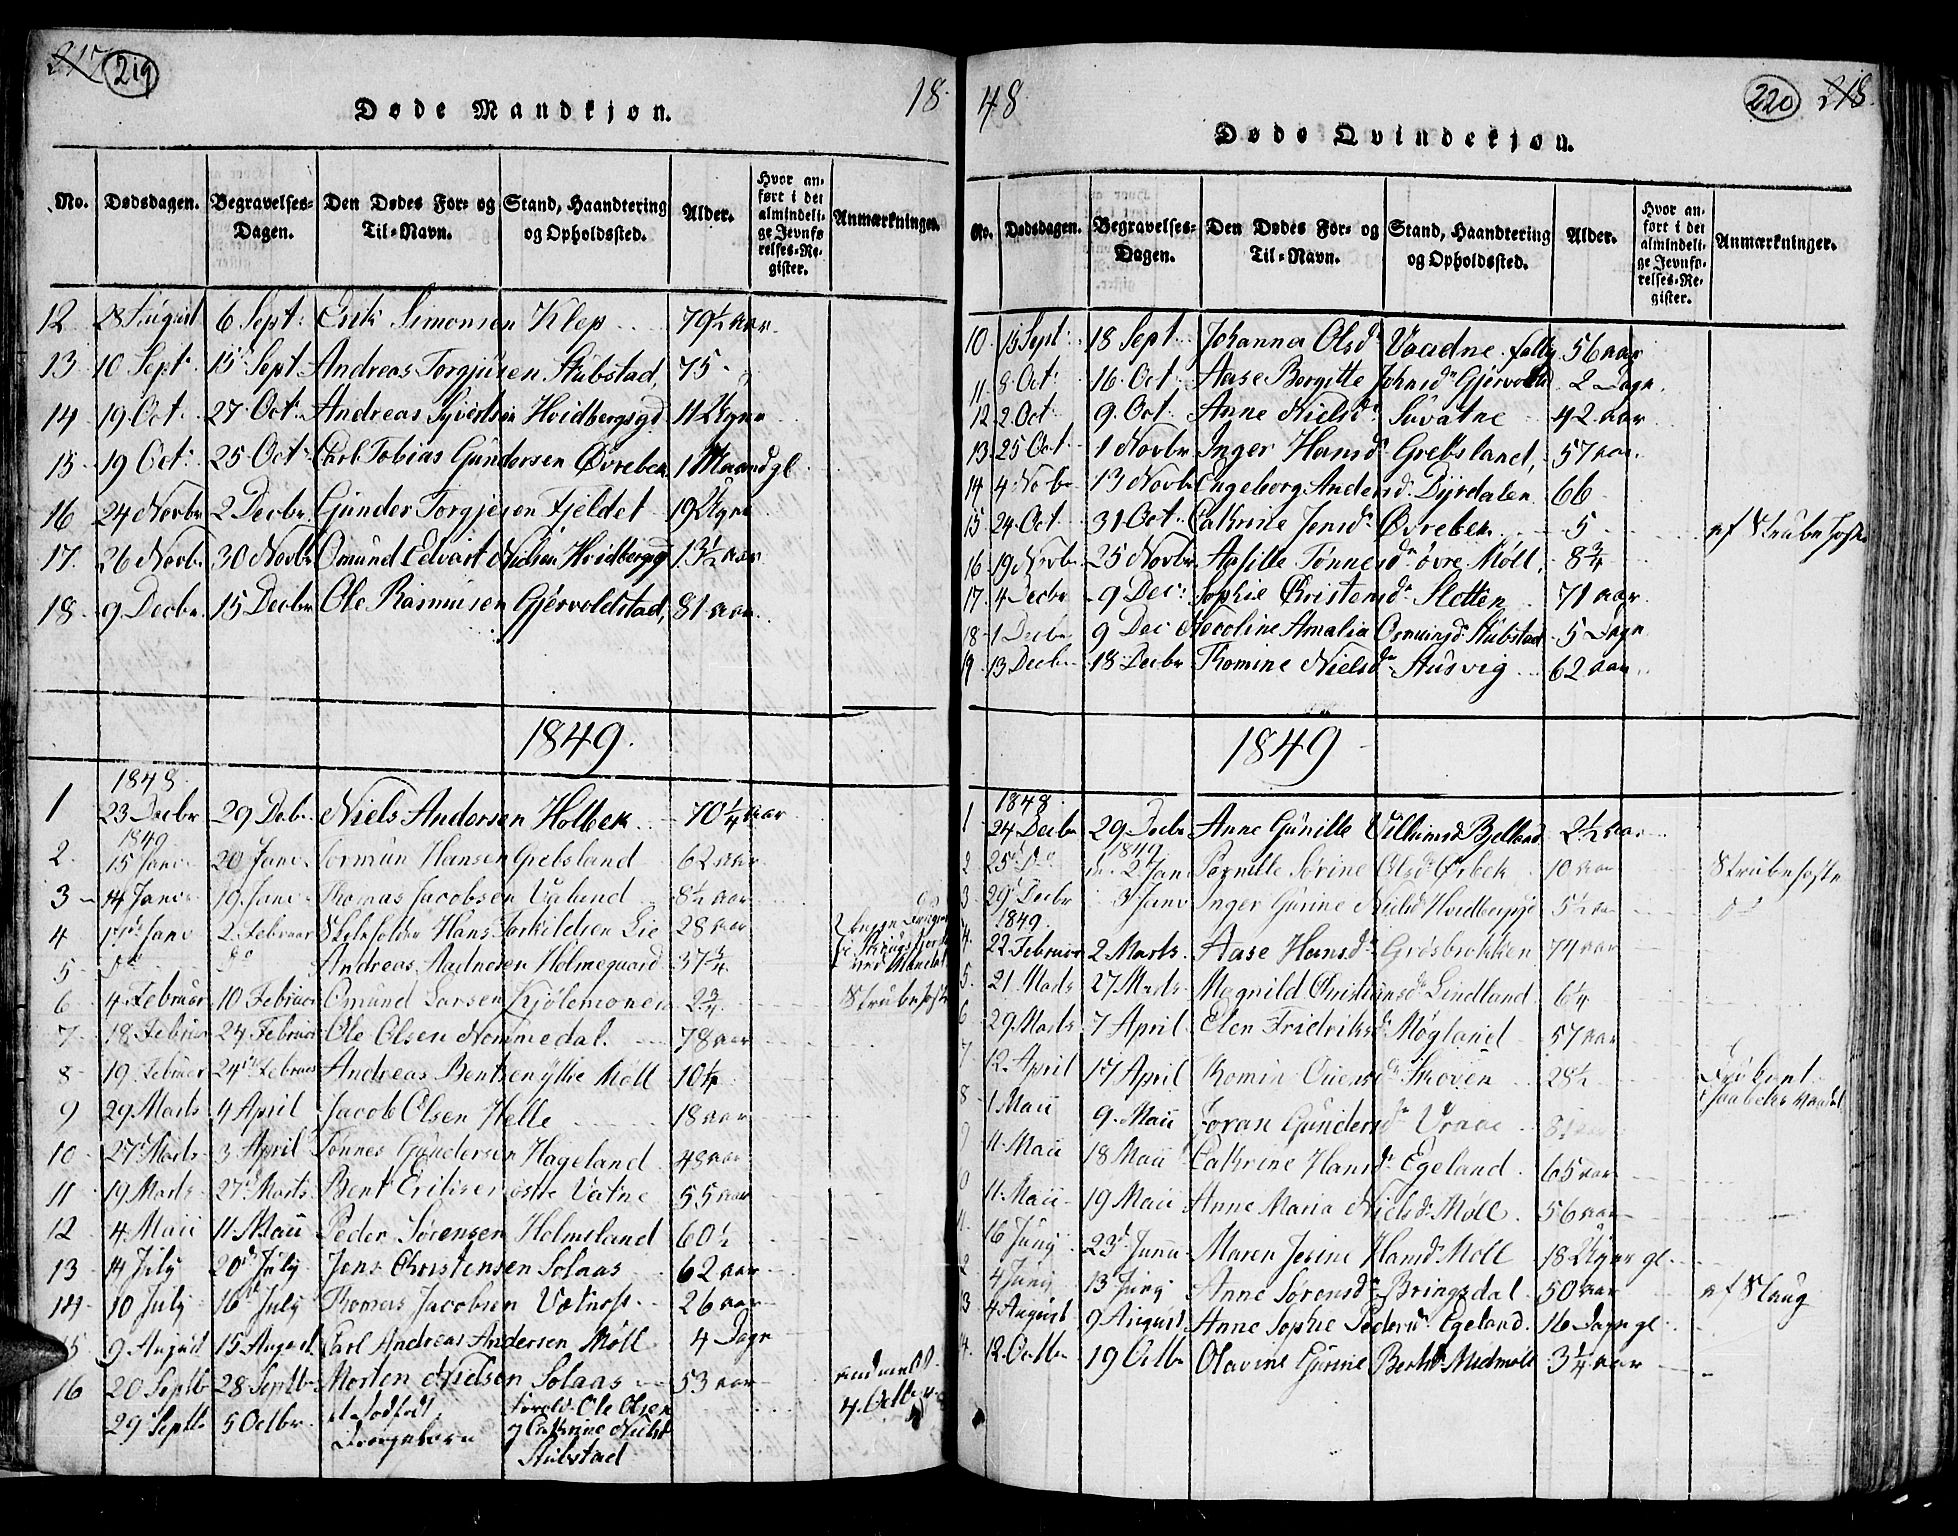 217 219
18
Døde Mandkjøn.
No. Dødsdagen. Begravelses-Dagen. Den Dødes For- og Til-Navn. Stand, Haandtering og Opholdssted. Alder. Hvor anført i det almindelige Jevnførelses-Register. Anmærkninger.
12 28 August 6 Sept: Erik Simonsen Klep 79½ aar
13 10 Sept 15 Sept Andreas Torgjusen Stubstad, 75
14 19 Oct: 27 Oct: Andreas Syvertsen Hvidbergsgd 11 Ugne
15 19 Oct: 25 Oct: Carl Tobias Gundersen Øvrebek 1 Maand gl.
16 24 Novbr 2 Decbr. Gunder Torgjesen Fjeldet 19 Ugne
17. 26 Novbr 30 Novbr Omund Edvart Nielsen Hvidbergsgd 13½ aar
18 9 Decbr. 15 Decbr Ole Rasmusen Gjervoldstad, 81 aar
1849.
1848
1 23 Decbr 29 Debr. Niels Andersen Holbek 70¼ aar
1849
2 15 Janv 20 Janv Tormun Hansen Grebsland 62 aar
3 14 Janv 19 Janv Thomas Jacobsen Valand 8½ aar
4 17 Janv 2 Februar Skoleholder Hans Torkildsen Lie 28 aar
5 do do Andreas Aadnesen Holmegaard 37¾
6 4 Februar 10 Februar Omund Larsen Kjølemoren 2¾ Strubehoste
7 18 Februar 24 Februar Ole Olsen Nommedal. 78 aar
8 19 Februar 24 Februar Andreas Bentsen ytre Møll 10¼
9 29 Marts 4 April Jacob Olsen Helle 18 aar
10 27 Marts 3 April Tønnes Gundersen Hageland 48 aar
11 19 Marts 27 Marts Bent Eriksen østre Vatne 55 aar
12 4 Maii 11 Maii Peder Sørensen Holmsland 60½
13 14 July 20 July Jens Christensen Solaas 62 aar
14 10 July 16 July Thomas Jacobsen Vatnøs 26 aar
15 9 August 15 August Carl Andreas Andersen Møll 4 Dage
16 20 Septbr 28 Septbr Morten Nielsen Solaas 53 aar
29 Septbr 5 Octbr. et dødfødt, Drengebarn Foræld. Ole Olsen
og Cathrine Nielsd
Stubstad
48
220 218
Døde Qvindekjøn.
No. Dødsdagen. Begravelses-Dagen. Den Dødes For- og Til-Navn. Stand, Haandtering og Opholdssted. Alder. Hvor anført i det almindelige Jevnførelses-Register. Anmærkninger.
10 15 Sept: 18 Sept Johanna Olsdr Vaadne 56 aar
11 8 Oct: 16 Oct Aase Bergitte Johnsdr Gjervoldstad 2 Dage.
12 2 Oct: 9. Oct. Anne Nielsdr Suvatne 42 aar
13 25 Oct 1 Novbr Inger Hansd Grebsland, 57 aar
14 4 Novbr 13 Novbr Engeborg Andersd Dyrdalen 66
15 24 Oct. 31 Oct: Cathrine Jensdr Øvrebek 5 af Strubehoste
16 19 Novbr 25 Novbr Apfille Tønnesdr øvre Møll, 8¾
17. 4 Decbr 9 Dec: Sophie Christensdr Sletten 71 aar
18 1 Decbr 9 Dec Nicoline Amalia Osmunsd Stubstad 5 Dage
19 13 Decbr 18 Decbr Thomine Nielsdr Stusvig 62 aar
1849
1848
1 24 Decbr 29 Decbr Anne Gunille Villumsd Bjelland 2½ aar
1849
2 25 Do 2 Janv Pernille Sørine Olsd Ørbek 10 aar Strubehoste
3 29 Decbr 3 Janv Inger Gurine Nielsd Hvidbergsgd 5½ aar do
1849.
4 22 Februar 2 Marts Aase Hansdr Grosbrokken 74 aar
5. 21 Marts 27 Marts Magnild Christiansdr Lindland 6¼
6 29 Marts 7 April Elen Fridriksdr Møgland 57 aar
7 12 April 17 April Tomin dr Skoven 28½
8 1 Maii 9. Maii Joran Gundersdr Vraae
9 11 Maii 18 Maii Cathrine Hansdr Egeland 65 aar
11 Maii 19 Maii Anne Maria Nielsdr Møll 56 aar
11. 16 Juny 23 Juny Maren Jesine Hansdr Møll 18 Uger gl.
2 4 Juny 13 Juny Anne Sørensdr Bringsdal 50 aar af Slaug
13 4 August 9 August Anne Sophie Pedersdr Egeland. 16 Dage gl
4. 12 Octbr 19 Octbr Olavine Gurine Bertsdr Midmøll 3¼ aar